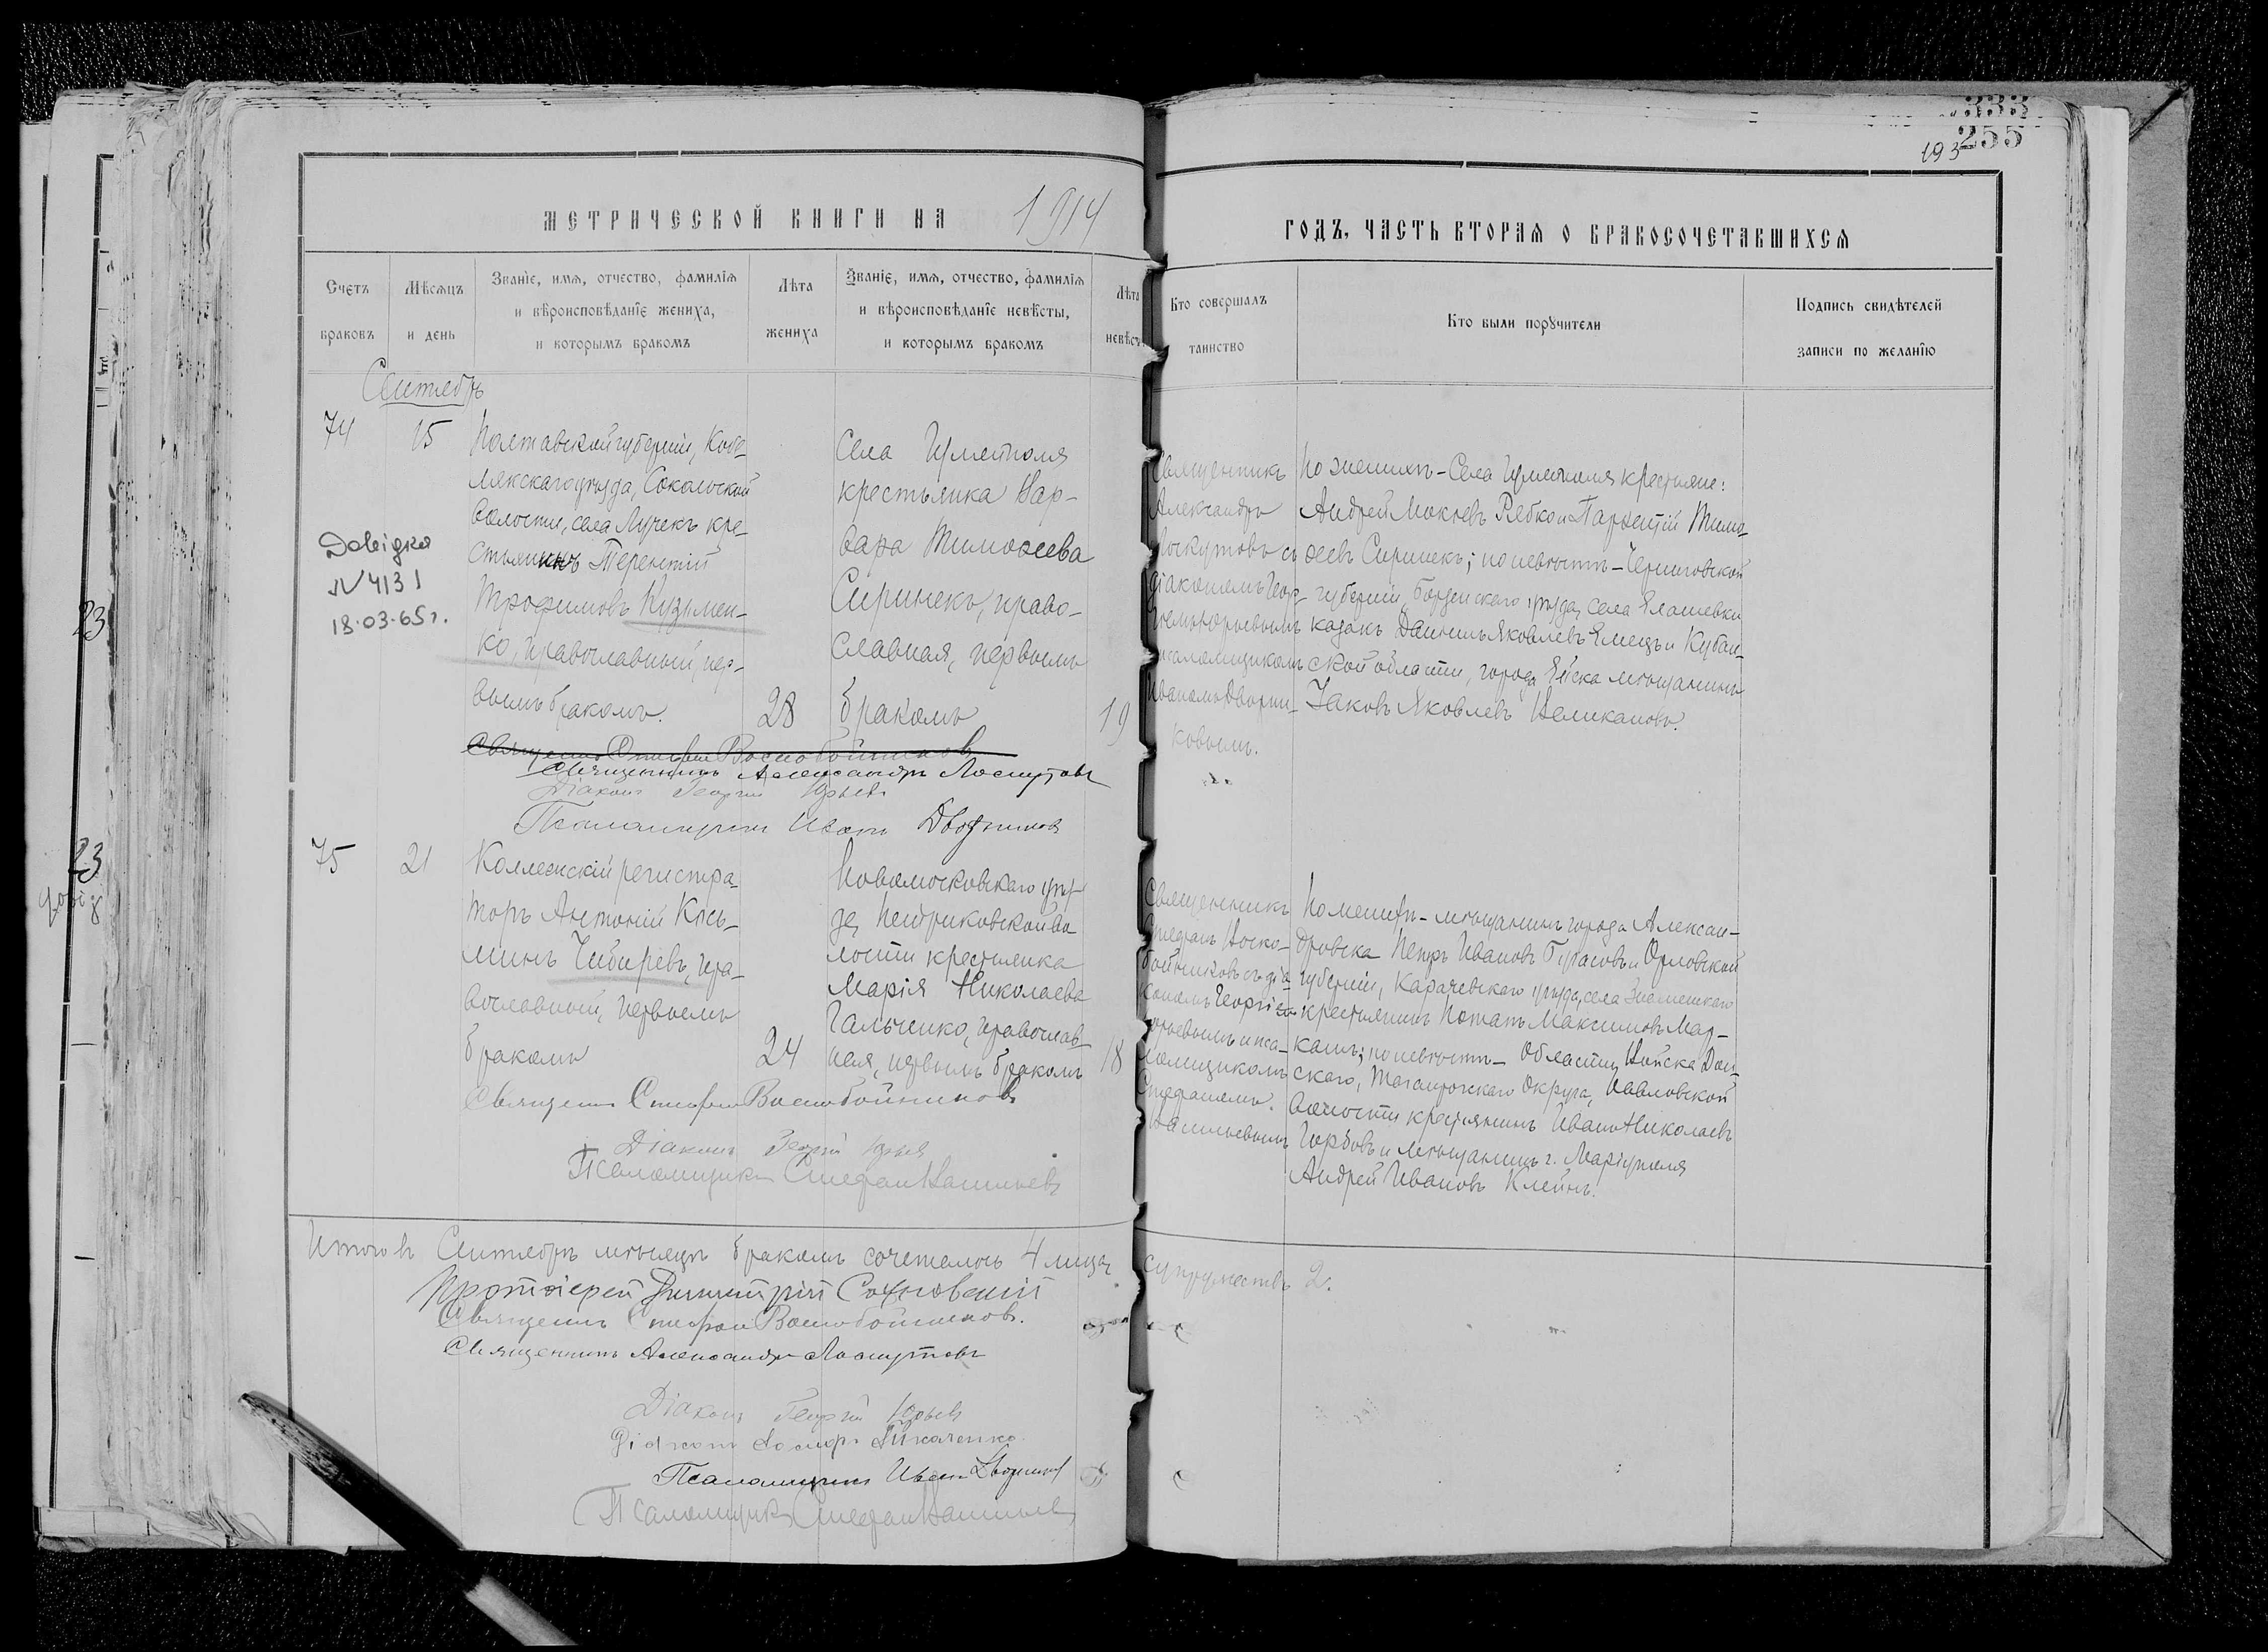 333
255
193
МЕТРИЧЕСКОЙ КНИГИ НА 1914
ГОДЪ, ЧАСТЬ ВТОРАЯ О БРАКОСОЧЕТАВШИХСЯ
Счетъ
браковъ
Мѣсяцъ
и день
Званіе, имя, отчество, фамилія
и вѣроисповѣданіе жениха,
и которымъ бракомъ
Лѣта
жениха
Званіе, имя, отчество, фамилія
и вѣроисповѣданіе невѣсты,
и которымъ бракомъ
Лѣта
невѣст
Кто совершалъ
таинство
Кто были поручители
Подпись свидѣтелей
записи по желанію
Сентябрь
74
15
Полтавской губерніи, Кобе-
лякскаго уѣзда, Сокольской
волости, села Лучекъ кре-
стьянинъ Терентій
Трофимовъ Кузьмен-
ко, православный, пер-
вымъ бракомъ.
28
Довідка
№ 4131
18.03.65г.
Села Гуляйполя
крестьянка Вар-
вара Тимоѳеева
Сиринекъ, право-
славная, первымъ
бракомъ
19
Священникъ
Александръ
Лоскутовъ съ
діакономъ Геор-
гіемъ Юрьевымъ
псаломщикомъ
Иваномъ Дворни-
ковымъ.
По женихѣ - Села Гуляйполя крестьяне:
Андрей Мокіевъ Рябко и Тимо-
ѳеевъ Сиринекъ; по невѣстѣ - Черниговской
губерніи, Борзенскаго уѣзда, села
казакъ Даніилъ Яковлевъ Емецъ и Кубан-
ской области, города Ейска мѣщанинъ
Яковъ Яковлевъ Великановъ.
Священ Стефан Воскобойников
Священникъ Александръ Лоскутовъ
Діаконъ Георгій Юрьевъ
Псаломщикъ Иванъ Дворниковъ
75
21
Коллежскій регистра-
торъ Антоній Кось-
минъ Чибиревъ, пра-
вославный, первымъ
бракомъ
24
Новомосковскаго уѣз-
да, Петриковской во
лости крестьянка
Марія Николаева
Гальченко, православ-
ная, первымъ бракомъ
18
Священникъ
Стефанъ Воско-
бойниковъ съ діа
кономъ Георгіем
Юрьевымъ и пса-
ломщикомъ
Стефаномъ
Васильевымъ
По женихѣ - мѣщанинъ города Алексан-
дровска Петръ Ивановъ и Орловской
губерніи, Карачевскаго уѣзда, села Знаменскаго
крестьянинъ Потапъ Максимовъ Мар-
кинъ; по невѣстѣ - Области Войска Дон-
скаго, Таганрогскаго Округа, Павловской
волости крестьянинъ Иванъ Николаевъ
Горбовъ и мѣщанинъ г. Маріуполя
Андрей Ивановъ Клейнъ.
Священ Стефан Воскобойников
Діаконъ Георгій Юрьев
Псаломщикъ Стефан Васильевъ
Итого въ Сентябрѣ мѣсяцѣ бракомъ сочеталось 4 лица, супружествъ 2.
Протоіерей Димитрій
Священ Стефан Воскобойников.
Священникъ Александръ Лоскутовъ
Діаконъ Георгій Юрьевъ
Діаконъ Ткаченко
Псаломщикъ Иван Дворников
Псаломщикъ Стефан Васильев
23
23